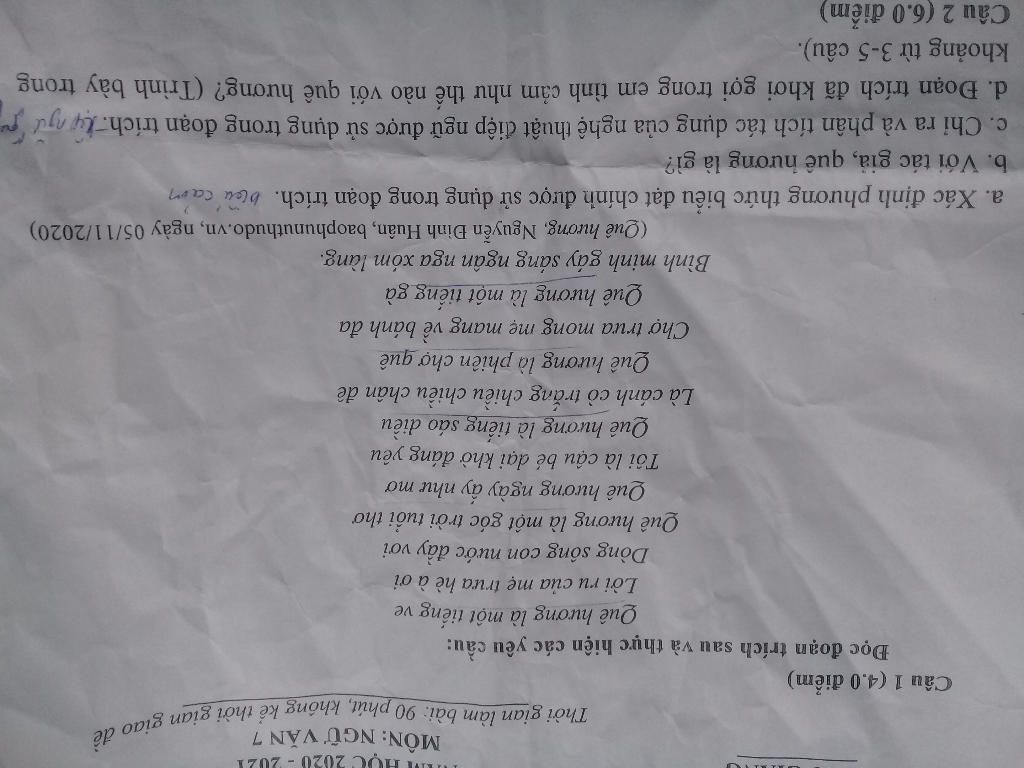 NĂM HỌC 2020 - 2021
MÔN: NGỮ VĂN 7
Thời gian làm bài: 90 phút, không kể thời gian giao đề
Câu 1 (4.0 điểm)
Đọc đoạn trích sau và thực hiện các yêu cầu:
Quê hương là một tiếng ve
Lời ru của mẹ trưa hè à ơi
Dòng sông con nước đầy vơi
Quê hương là một góc trời tuổi thơ
Quê hương ngày ấy như mơ
Tôi là cậu bé dại khờ đáng yêu
Quê hương là tiếng sáo diều
Là cánh cò trắng chiều chiều chân đê
Quê hương là phiên chợ quê
Chợ trưa mong mẹ mang về bánh đa
Quê hương là một tiếng gà
Bình minh gáy sáng ngân nga xóm làng.
(Quê hương, Nguyễn Đình Huân, baophunuthudo.vn, ngày 05/11/2020)
a. Xác định phương thức biểu đạt chính được sử dụng trong đoạn trích. biểu cảm
b. Với tác giả, quê hương là gì?
c. Chỉ ra và phân tích tác dụng của nghệ thuật điệp ngữ được sử dụng trong đoạn trích. điệp ngữ
d. Đoạn trích đã khơi gợi trong em tình cảm như thế nào với quê hương? (Trình bày trong
khoảng từ 3-5 câu).
Câu 2 (6.0 điểm)